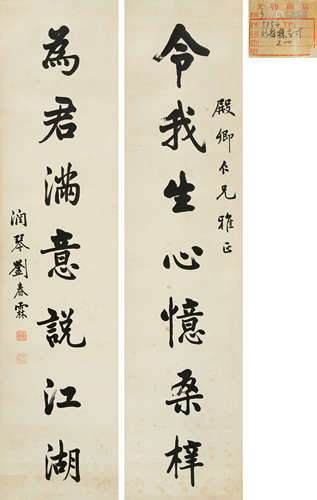 令我生心憶桑梓
殿卿仁兄雅正
為君滿意說江湖
潤琴劉春霖